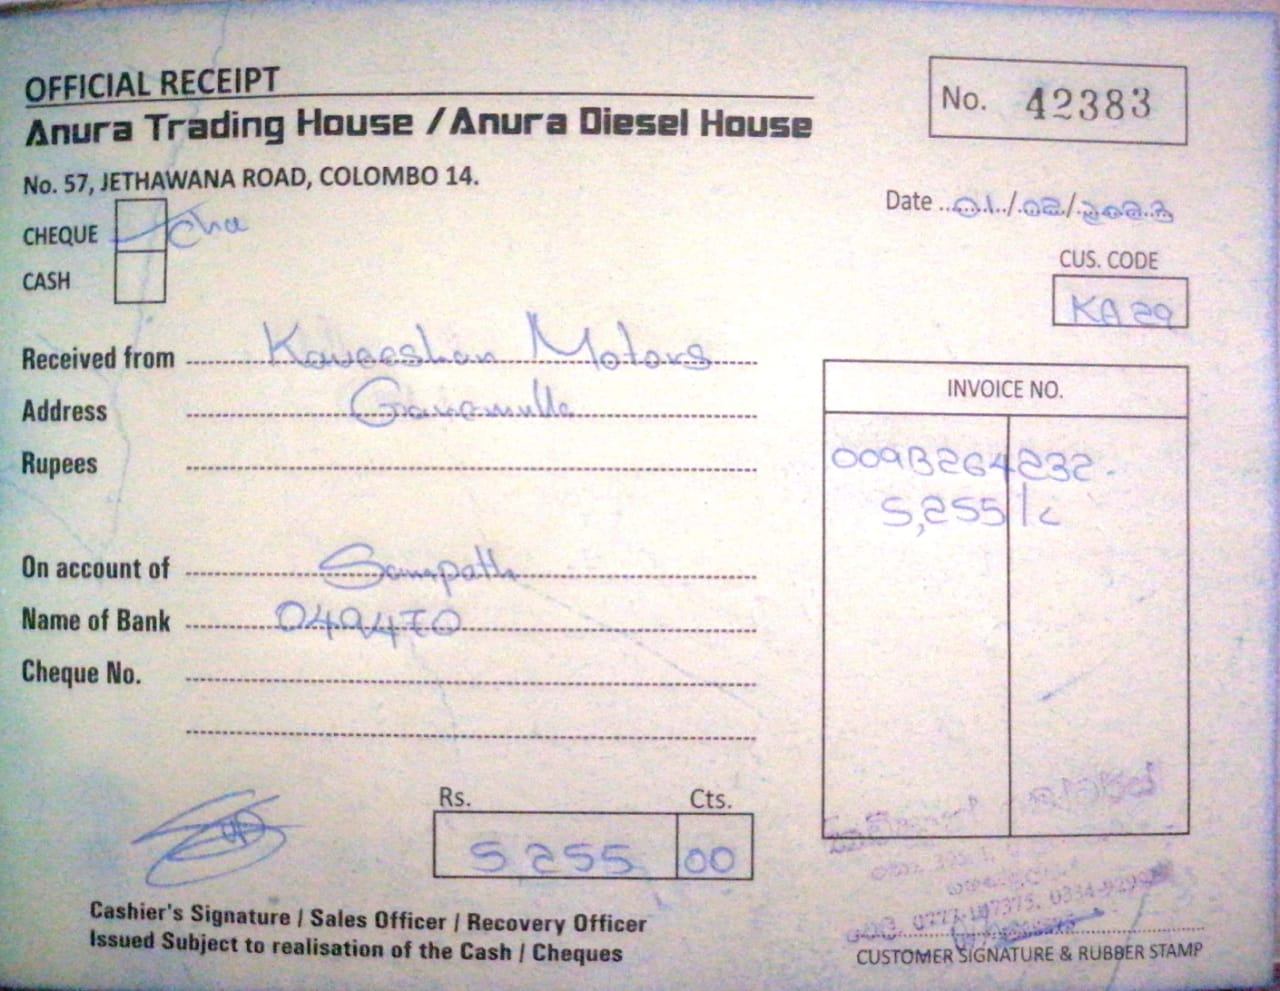 OFFICIAL RECEIPT
Anura Trading House / Anura Diesel House
No. 42383
No. 57, JETHAWANA ROAD, COLOMBO 14.
Date 01/02/2023
CHEQUE Che
CASH
CUS. CODE
KA 29
Received from Kaveeshan Motors
Address Ganamulla
Rupees
INVOICE NO.
009B264232
5,255/c
On account of Sampath
Name of Bank 049470
Cheque No.
Rs. Cts.
5 255 00
Cashier's Signature / Sales Officer / Recovery Officer
Issued Subject to realisation of the Cash / Cheques
CUSTOMER SIGNATURE & RUBBER STAMP